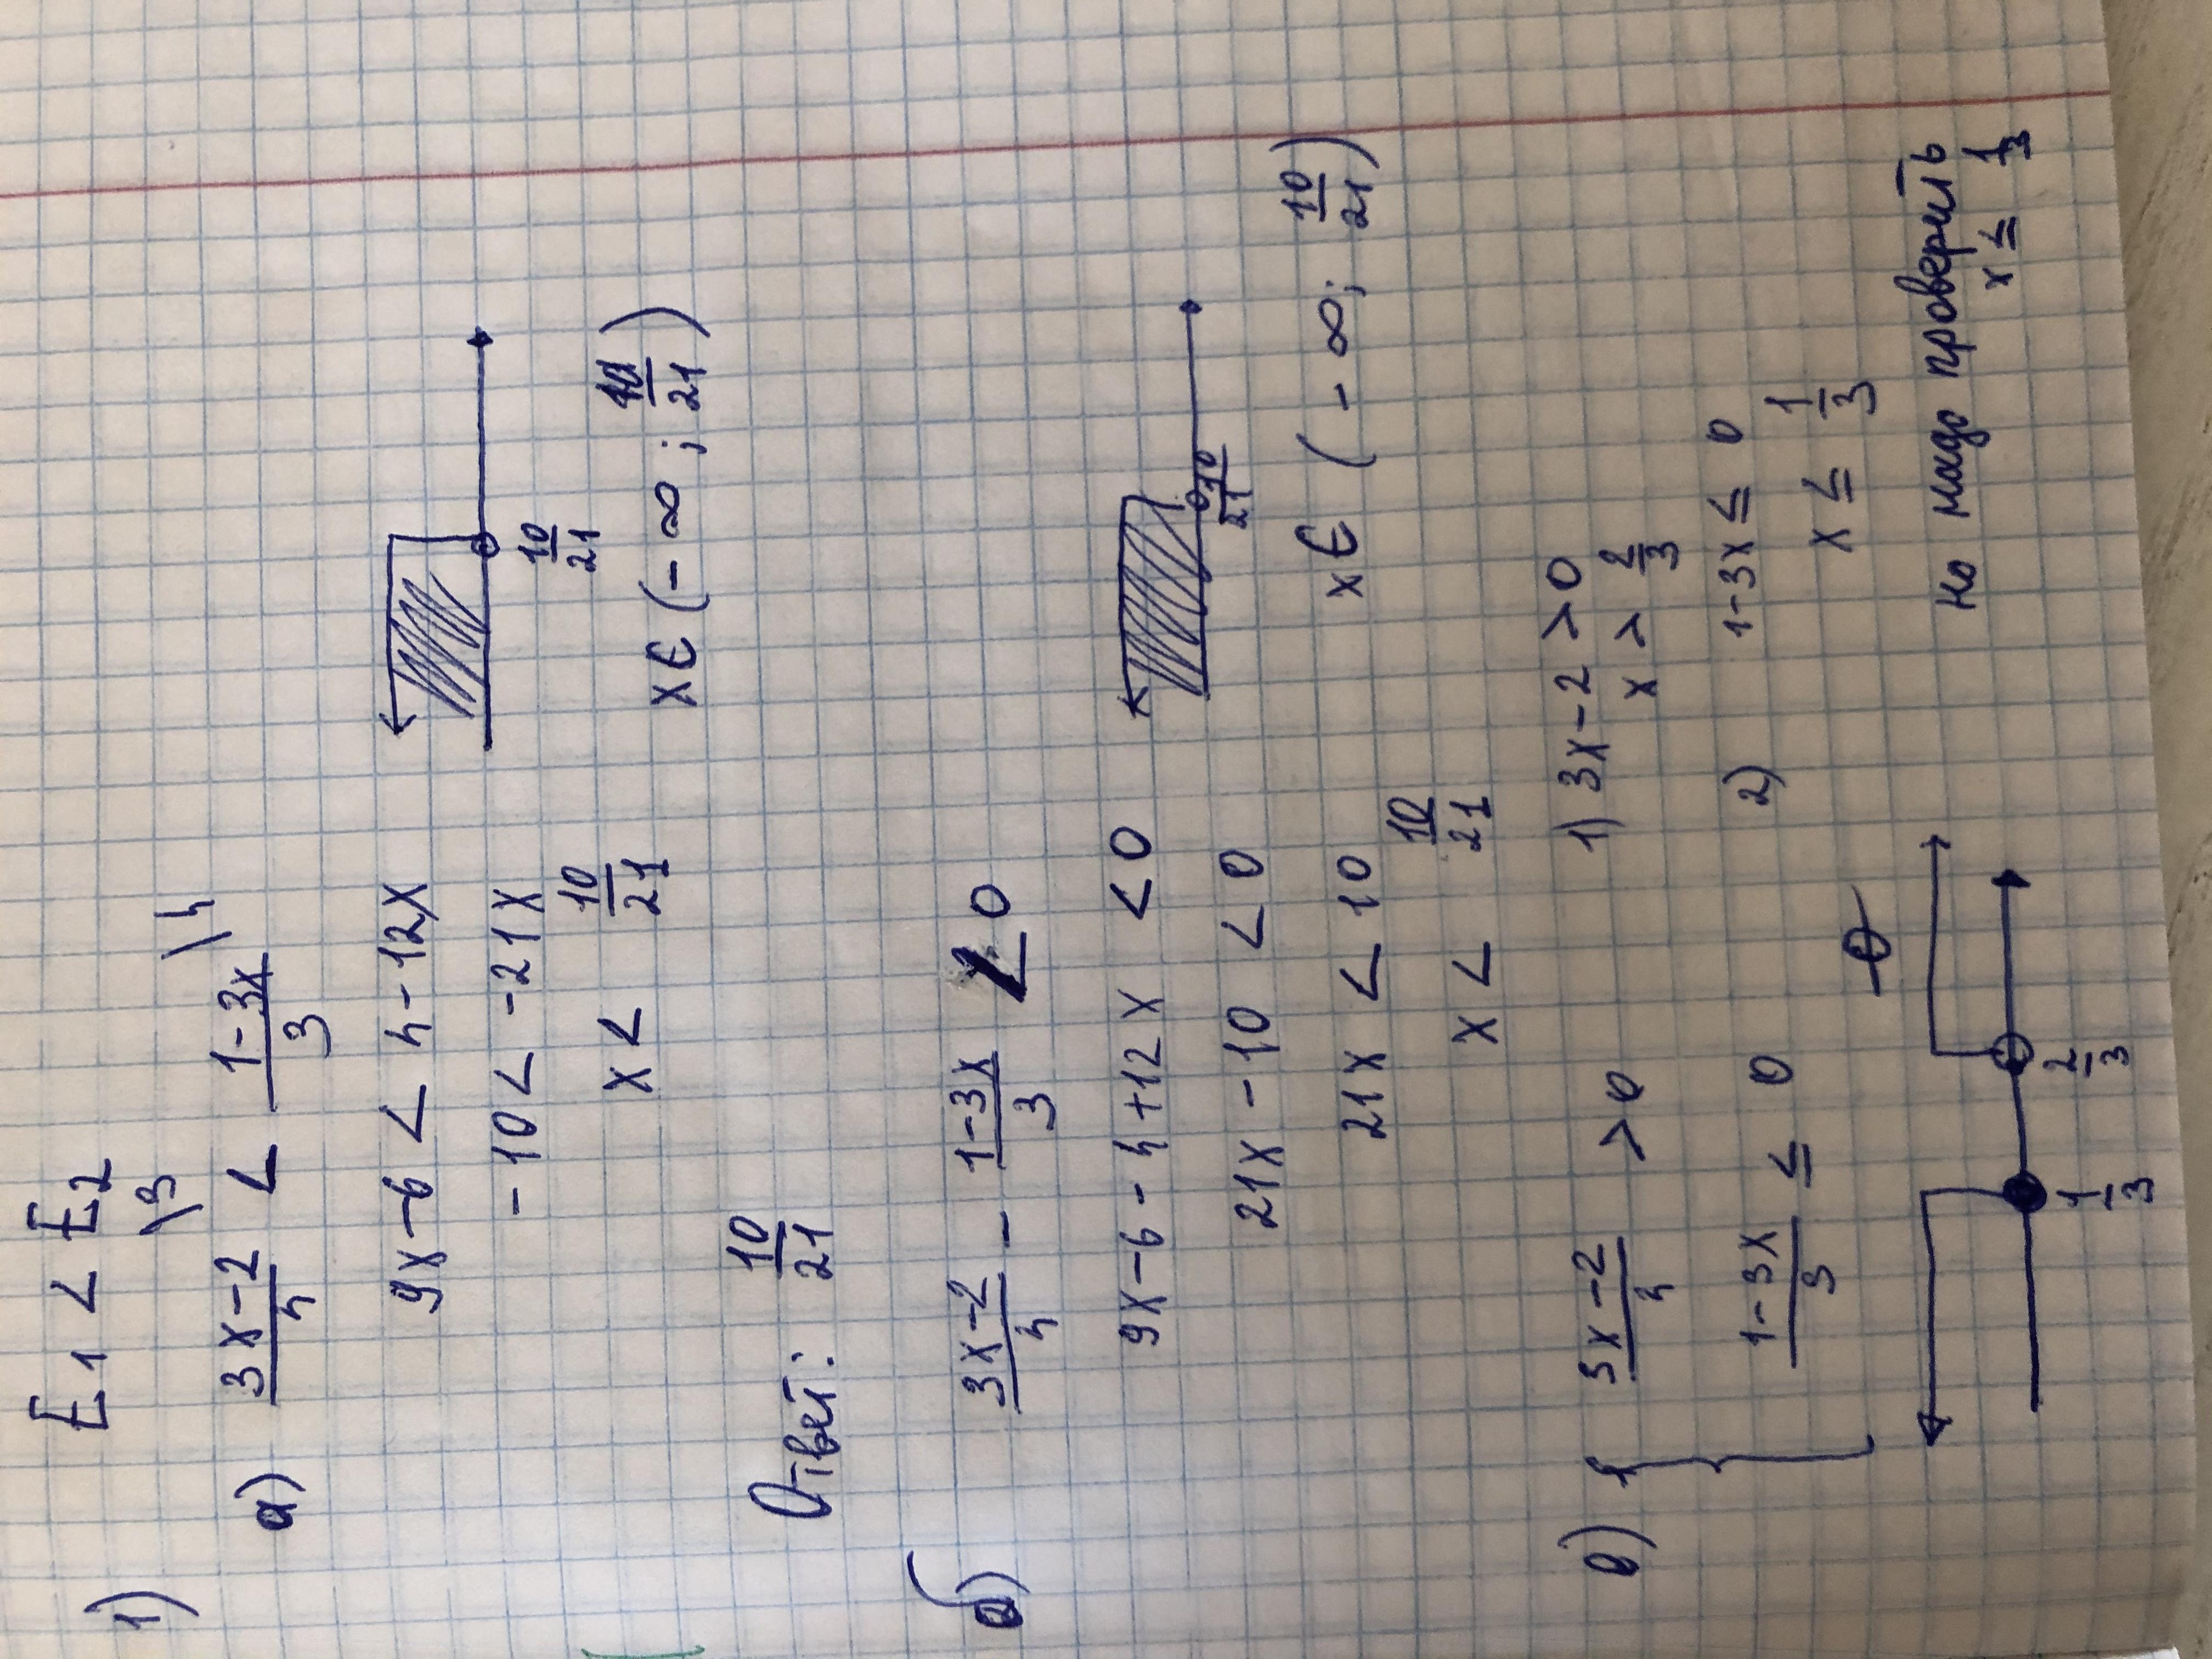 1) E1 < E2
\3 \4
а) 3x-2/4 < 1-3x/3
9x-6 < 4-12x
-10 < -21x
x < 10/21
10/21
x ∈ (-∞; 10/21)
Ответ: 10/21
б) 3x-2/4 - 1-3x/3 < 0
9x-6-4+12x < 0
21x-10 < 0
21x < 10
x < 10/21
10/21
x ∈ (-∞; 10/21)
в) { 3x-2/4 > 0
1-3x/3 ≤ 0
1) 3x-2 > 0
x > 2/3
2) 1-3x ≤ 0
x ≤ 1/3
1/3 2/3
но надо проверить
x ≤ 1/3